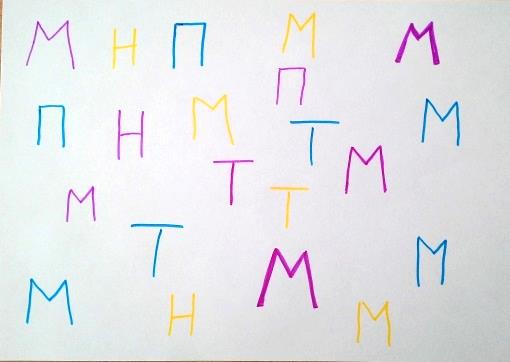 М Н П М М
П
П Н М Т М
Т М
М Т
Т М М
М Н М